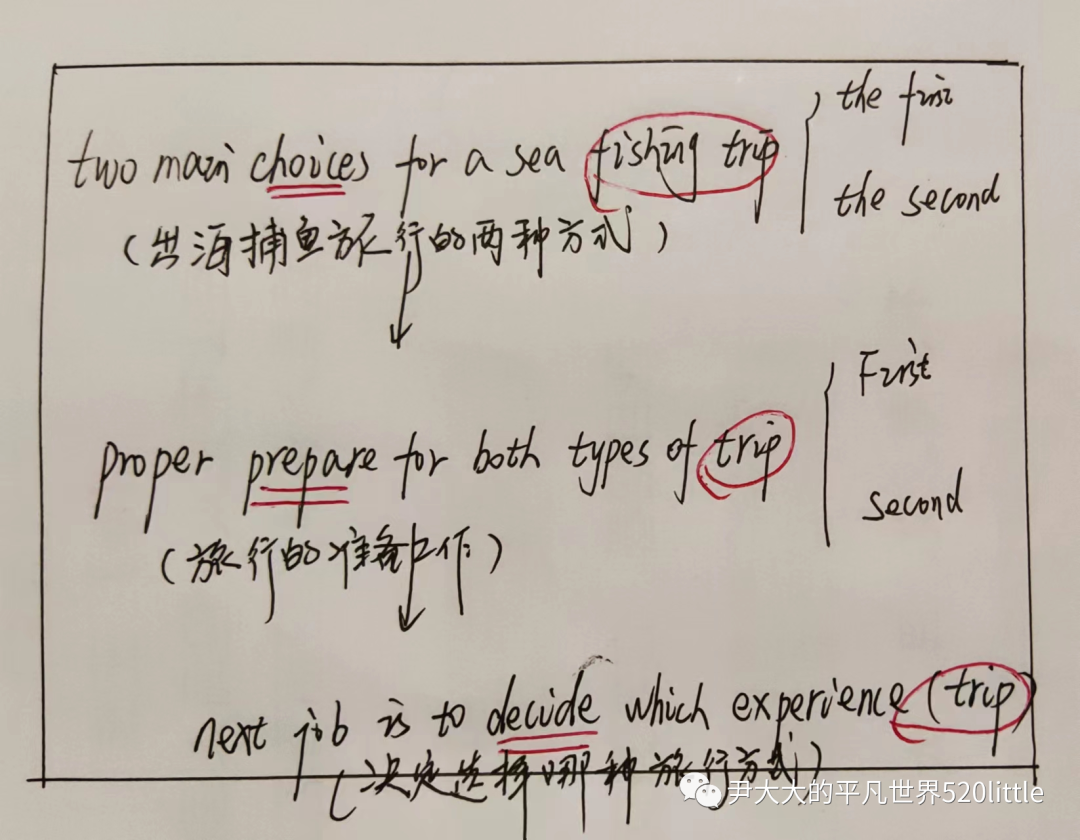 the first
two main choices for a sea fishing trip
the second
(出海捕鱼旅行的两种方式)
First
proper prepare for both types of trip
second
(旅行的准备工作)
next job is to decide which experience (trip)
(决定选择哪种旅行方式)
尹大大的平凡世界520little